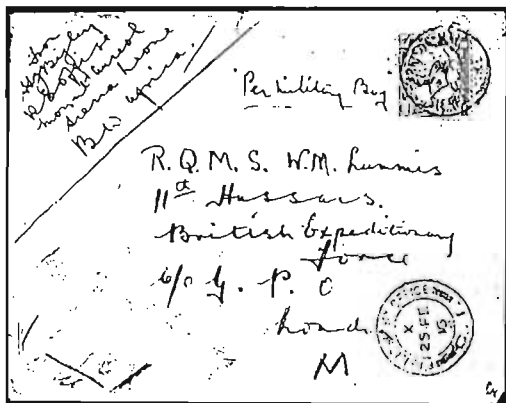 from
R E Office
Mount Aureol
Sierra Leone
B W Africa.
"Per Military Bag"
R. Q. M. S. W.M. Lummis
11th Hussars.
British Expeditionary
Force
c/o G. P. O
London
M.
X
25 FE
15